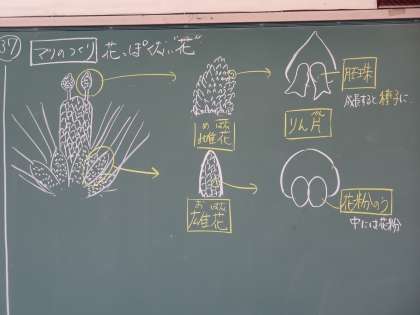 37
マツのつくり 花っぽくない"花"
胚珠
成長すると種子に
りん片
めばな
雌花
おばな
雄花
花粉のう
中には花粉